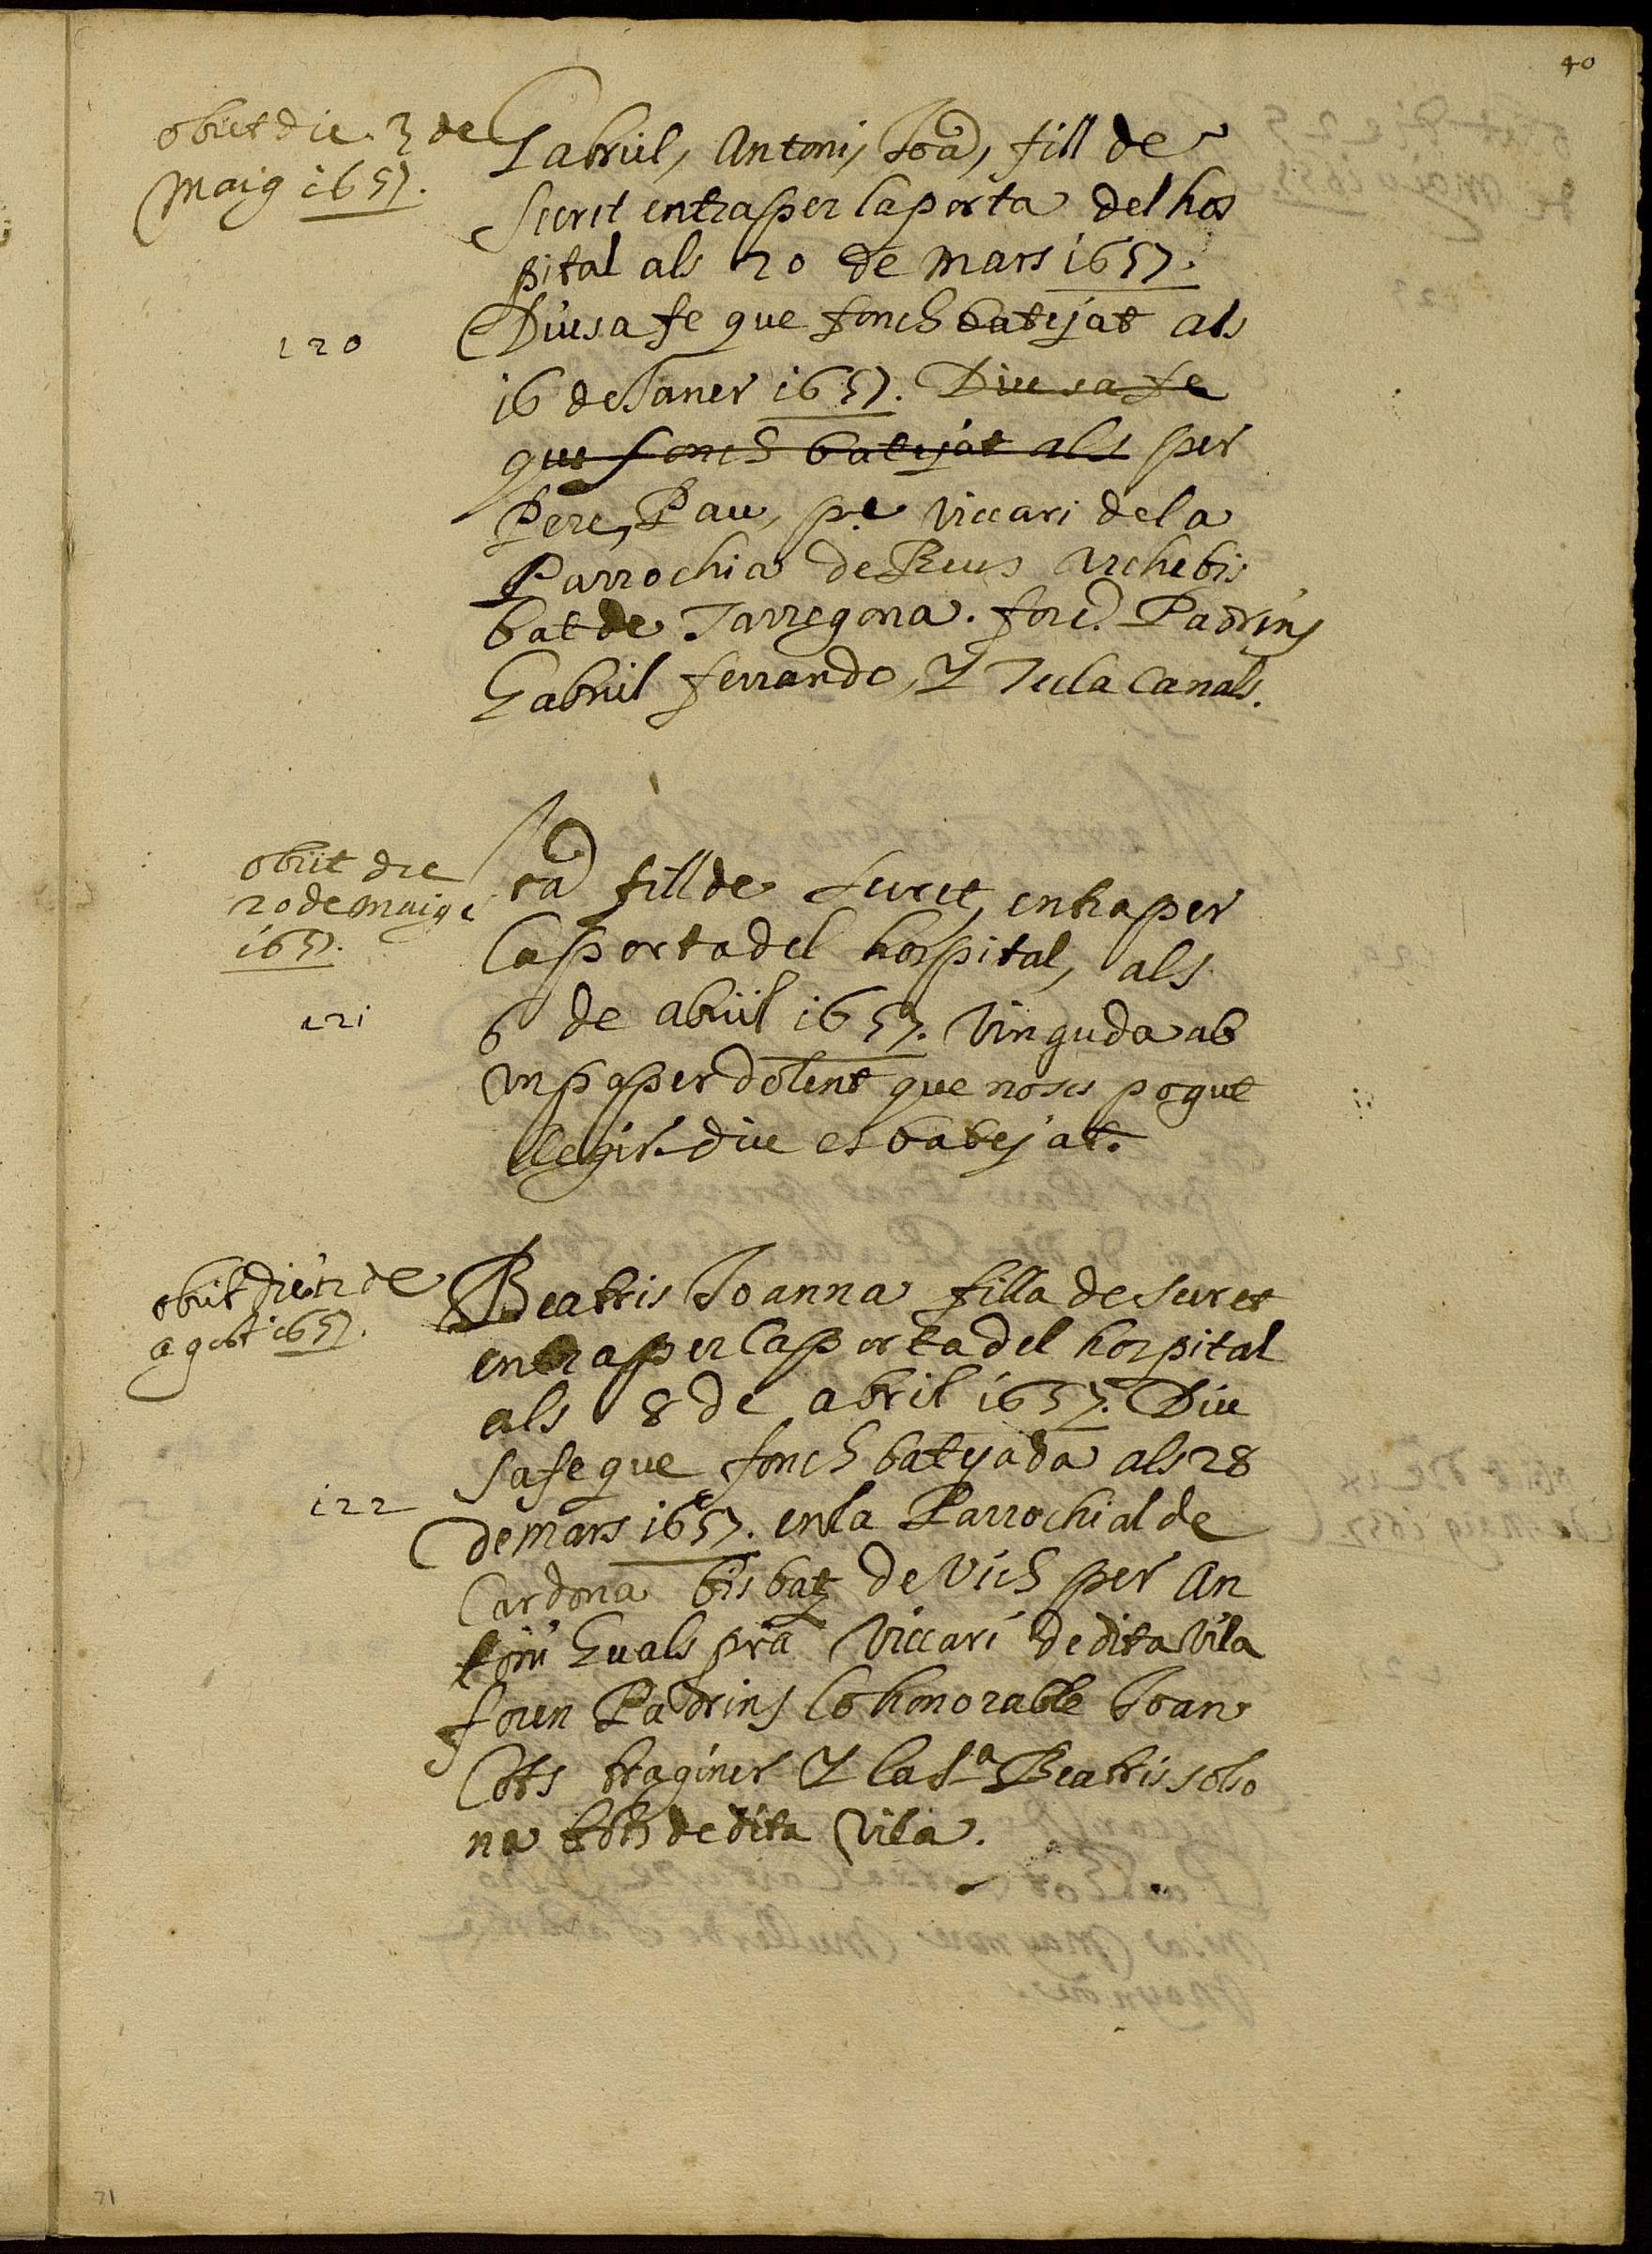 40
obiit die 3 de
Maig 1657.
Gabriel, Antoni, Joā, fill de
Secret entra per la porta del hos
pital als 20 de mars 1657.
Diu sa fe que fonch batejat als
120
16 de Janer 1657. Diu sa fe
que fonch batejat als per
Pere, Pau, pre Viccari de la
Parrochia de Reus Archebis
bat de Tarregona. forē. Padrins
Gabriel ferrando, Y Tecla Canals.
obiit die
20 de maig
1657.
Joā fill de Secret, entra per
la porta del hospital, als
121
6 de abriil 1657. Vinguda ab
un paper dolent que no ses pogut
llegir. diu es batejat.
obiit die 12 de
agost 1657.
Beatris Joanna filla de secret
entra per la porta del hospital
als 8 de abril 1657. Diu
sa fe que fonch batejada als 28
122
de mars 1657. en la Parrochial de
Cardona bisbat de Vich per An
toni Guals prā Viccari de dita Vila
foren Padrins lo honorable Joan
Cots traginer Y la Sª Beatris solso
na tots de dita Vila.
71